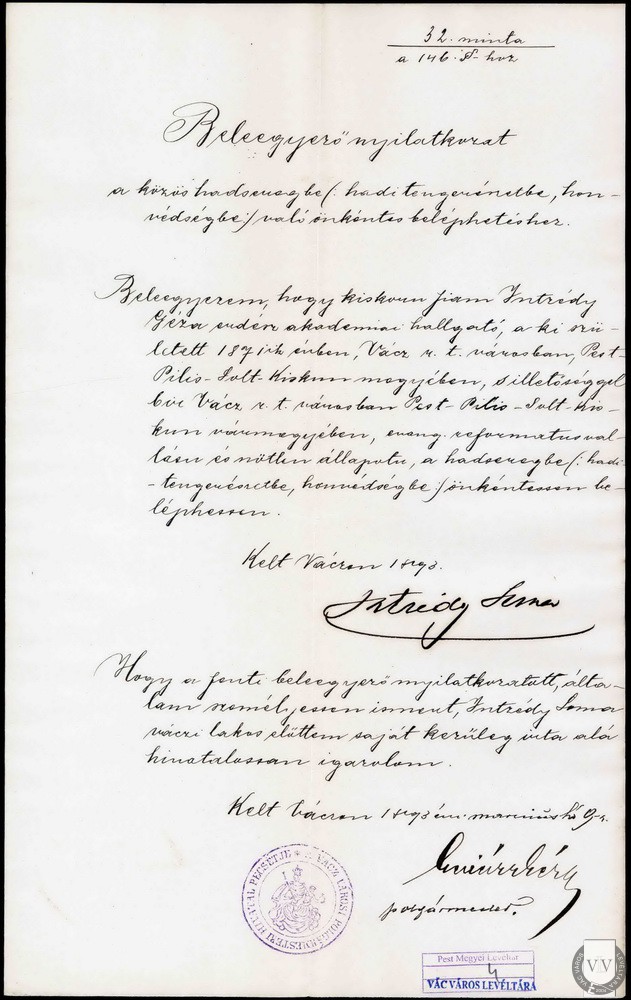 32. minta
a 146. §-hoz
Beleegyező nyilatkozat
a közös hadseregbe (: haditengerészetbe, hon-
védségbe :) való önkéntes beléphetéshez.
Beleegyezem, hogy kiskoru fiam Intzédy
Géza erdész akademiai hallgató, a ki szü-
letett 1871ik évben, Vácz r. t. városban, Pest-
Pilis-Solt-Kiskun megyében, s illetőséggel
bir Vácz r. t. városban Pest-Pilis-Solt-Kis-
kun vármegyében, evang. reformatus val-
lásu és nőtlen állapotu, a hadseregbe (: hadi
-tengerészetbe, honvédségbe :) önkéntessen be-
léphessen.
Kelt Váczon 1893.
Intzédy Soma
Hogy a fenti beleegyező nyilatkozatott, álta-
lam személyessen ismert, Intzédy Soma
váczi lakos előttem saját kezüleg irta alá
hivatalossan igazolom.
Kelt Váczon 1893 évi marcius hó 9-n.
polgármester.
VÁCZ VÁROSI POLGÁRMESTERI HIVATAL PECSÉTJE
Pest Megyei Levéltár
4
VÁC VÁROS LEVÉLTÁRA
VÁC VÁROS LEVÉLTÁRA
V V